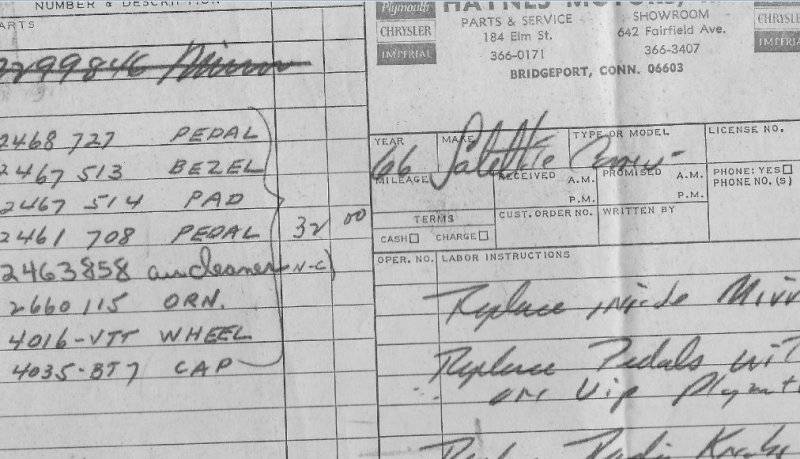 NUMBER & DESCRIPTION
PARTS
2299846 Mirror
2468 727 PEDAL
2467 513 BEZEL
2467 514 PAD
2461 708 PEDAL 32 00
2463858 air cleaner N-C
2660115 ORN.
4016-VTT WHEEL
4035-BT7 CAP
Plymouth
CHRYSLER
IMPERIAL
HAYNES MOTORS,
PARTS & SERVICE
184 Elm St.
366-0171
SHOWROOM
642 Fairfield Ave.
366-3407
BRIDGEPORT, CONN. 06603
CHRYSLER
IMPERIAL
YEAR MAKE TYPE OR MODEL LICENSE NO.
66 Satellite
MILEAGE RECEIVED A.M. P.M. PROMISED A.M. P.M. PHONE: YES
PHONE NO. (S)
TERMS CUST. ORDER NO. WRITTEN BY
CASH CHARGE
OPER. NO. LABOR INSTRUCTIONS
Replace inside Mirr
Replace Pedals wit
on Vip Plymout
Replace Radio Knobs